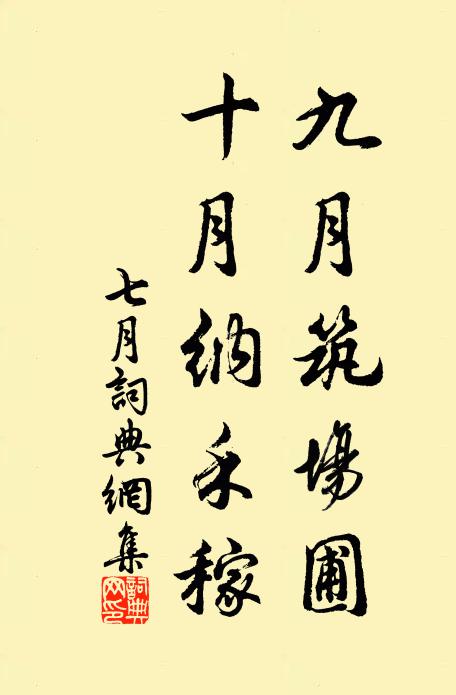 九月筑場圃
十月納禾稼
七月詞典網集
詞典网印